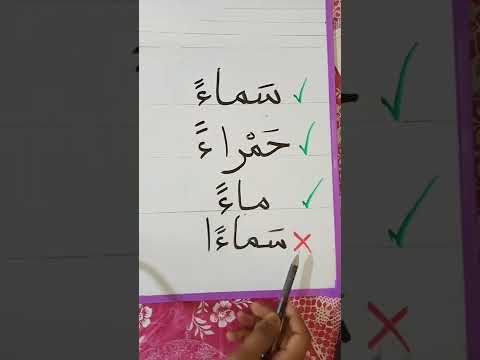 سَماءً
حَمْراءً
ماءً
سَماءًا